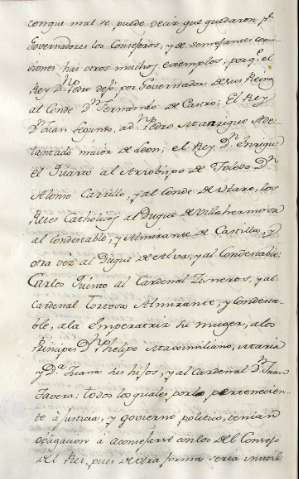 conque mal se puede decir que quedaron pr.
Governadores los Consejeros, y de semejantes co-
misiones hai otros muchos exemplos, porq.e el
Rey D.n Pedro dejó por Governador de sus Reinos
al Conde D.n Fernando de Castro; El Rey
D.n Juan Segundo, a D.n Pedro Manrique Ade-
lantado maior de Leon; el Rey D.n Enrique
el Quarto al Arzobispo de Toledo D.n
Alonso Carrillo, y al Conde de Haro; los
Reies Catholicos al Duque de Villahermosa
al Condestable, y Almirante de Castilla, y
otra vez al Duque de Alva, y al Condestable;
Carlos Quinto al Cardenal Zisneros, y al
Cardenal Tortosa Almirante, y Condesta-
ble, a la Emperatriz su muger, a los
Principes D.n Phelipe Maximiliano, Maria
y D.a Juana sus hijos, y al Cardenal D.n Juan
Tavera; todos los quales por lo pertenecien-
te à justicia, y govierno politico, tenian
obligacion à aconsejarse con los del Consejo
del Rei, pues de otra forma seria